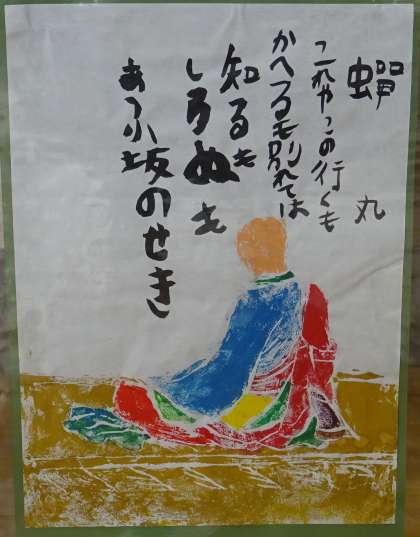 蟬丸
これやこの行くも
かへるも別れては
知るも
しらぬも
あふ坂のせき